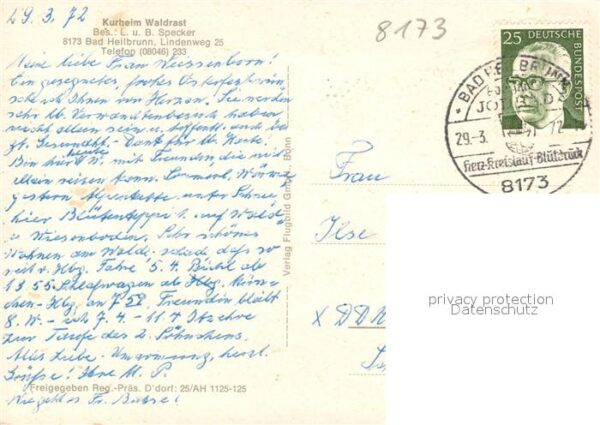 29.3.72
Kurheim Waldrast
Bes.: L. u. B. Specker
8173 Bad Heilbrunn, Lindenweg 25
Telefon (08046) 233
Meine liebe Frau Weissenborn!
Ein gesegnetes, frohes Osterfest wün-
sche ich Ihnen von Herzen. Sie werden
Verwandtenbesuch haben
nicht allein sein u. hoffentl. auch bei
Gesundht. Dank für lb. Karte.
Bin hier W. mit Freundin die nicht
allein reisen kann.
gestern Alpenkette unter Schnee
hier Blütenteppich auf Wald-
u Wiesenboden. Sehr schönes
Wohnen am Walde. schade dass so
weit v. Hbg. Fahre 5.4.
13 55 Schlafwagen ab Hbg.
chen - Hbg. an 7 58 Freundin bleibt
8. W. - ich 7.4. - 11.4 Itzehoe
zur Taufe des 2. Söhnchens.
Alles Liebe. Umarmung, herzl.
Grüße! Ihre M. P.
Freigegeben Reg.-Präs. D'dorf: 25/AH 1125-125
Verlag Flugbild GmbH., Bonn
8173
25
DEUTSCHE BUNDESPOST
BAD HEILBRUNN
29.3.72
Herz-Kreislauf-Blutdruck
8173
Frau
Ilse
X DDR
privacy protection
Datenschutz